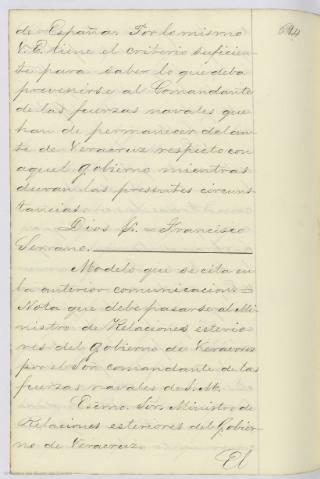 de España. Por lo mismo
V. E. tiene el criterio suficien-
te para saber lo que deba
prevenirse al Comandante
de las fuerzas navales que
han de permanecer delan-
te de Veracruz respecto con
aquel Gobierno mientras
duran las presentes circuns-
tancias.
Dios &. = Francisco
Serrano.
Modelo que se cita en
la anterior comunicacion =
Nota que debe pasarse al Mi-
nistro de Relaciones esterio-
res del Gobierno de Veracruz
por el Sor comandante de las
fuerzas navales de S. M.
Escmo. Sor. Ministro de
Relaciones esteriores del Gobier-
no de Veracruz.
El